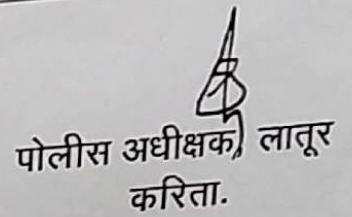 पोलीस अधीक्षक, लातूर
करिता.